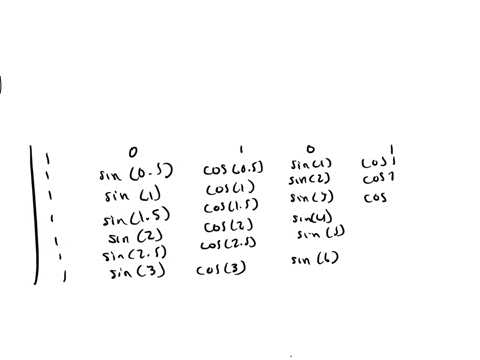 1 0 1 0 1
1 sin(0.5) cos(0.5) sin(1) cos1
1 sin(1) cos(1) sin(2) cos2
1 sin(1.5) cos(1.5) sin(3) cos
1 sin(2) cos(2) sin(4)
1 sin(2.5) cos(2.5) sin(5)
1 sin(3) cos(3) sin(6)